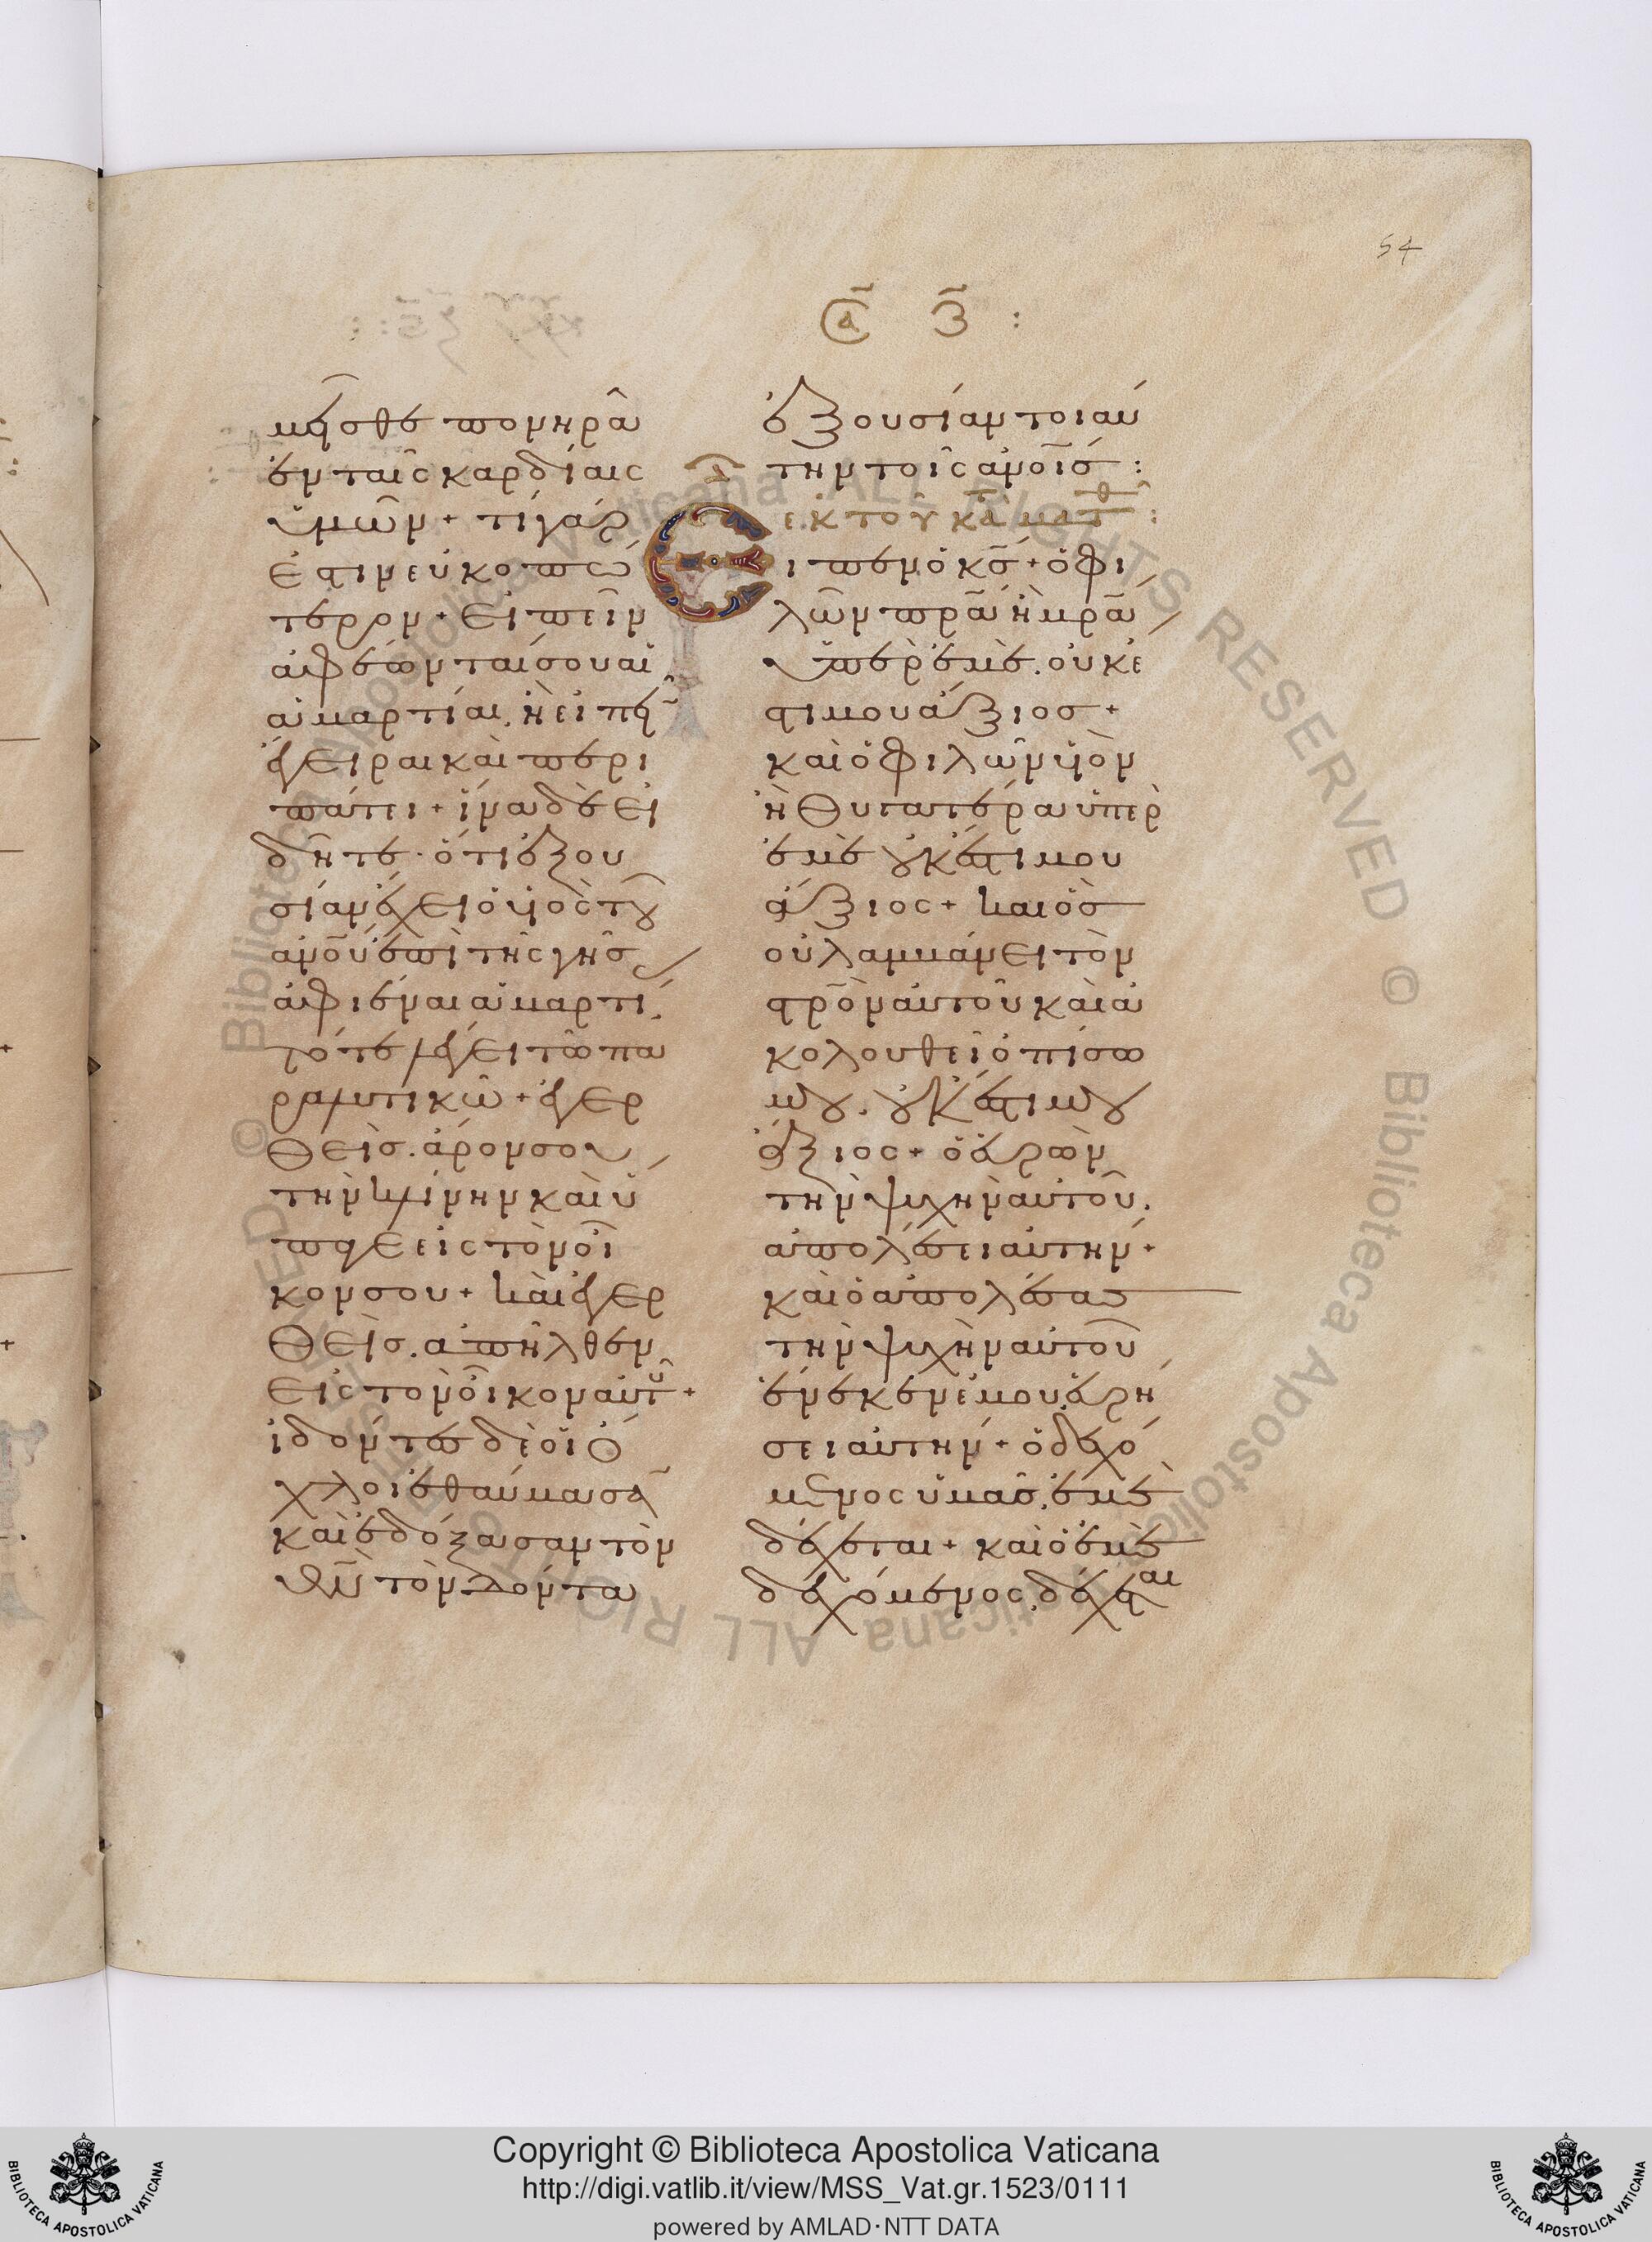 54
μεῖσθε πονηρὰ
ἐν ταῖς καρδίαις
ὑμῶν + τί γάρ
ἐστιν εὐκοπώ
τερρον + εἰπεῖν
ἀφέωνταί σου αἱ
ἁμαρτίαι. ἢ εἰπεῖ̃
ἔγειραι καὶ περι
πάτει + ἵνα δὲ εἰ
δῆτε· ὅτι ἐξου
σίαν ἔχει ὁ υἱὸς τοῦ
ἀνο̅υ ἐπὶ τῆς γῆς
ἀφιέναι ἁμαρτί.
τότε λέγει τῶ πα
ραλυτικῶ + ἐγερ
θεὶς. ἆρόν σου
τὴν κλίνην καὶ ὕ
παγε εἰς τὸν οἶ
κον σου + καὶ ἐγερ
θεὶς. ἀπῆλθεν
εἰς τὸν οἶκον αὐτοῦ +
ἰδόντες δὲ οἱ ὄ
χλοι ἐθαύμασα̃
καὶ ἐδόξασαν τὸν
θν̅ τὸν δόντα
Σα̅ ζ̅ :
ἐξουσίαν τοιαύ
την τοῖς ἀνο̅ις :
ἐκ τοῦ κατὰ ματθ :
Εἶπεν ὁ κς̅ + ὁ φι
λῶν πρ̅α ἢ μρ̅α
ὑπὲρ ἐμὲ. οὐκ ἔ
στι μου ἄξιος +
καὶ ὁ φιλῶν υἱὸν
ἢ θυγατέρα ὑπὲρ
ἐμὲ οὐκ ἔστι μου
ἄξιος + καὶ ὃς
οὐ λαμβάνει τὸν
στρ̅ον αὐτοῦ καὶ ἀ
κολουθεῖ ὀπίσω
μου. οὐκ ἔστι μου
ἄξιος + ὁ εὑρὼν
τὴν ψυχὴν αὐτοῦ.
ἀπολέσει αὐτήν +
καὶ ὁ ἀπολέσας
τὴν ψυχὴν αὐτοῦ
ἕνεκεν ἐμοῦ. εὑρή
σει αὐτήν + ὁ δεχό
μενος ὑμᾶς. ἐμὲ
δέχεται + καὶ ὁ ἐμὲ
δεχόμενος. δέχεται
© Biblioteca Apostolica Vaticana ALL RIGHTS RESERVED © Biblioteca Apostolica Vaticana ALL RIGHTS RESERVED
Copyright © Biblioteca Apostolica Vaticana
http://digi.vatlib.it/view/MSS_Vat.gr.1523/0111
powered by AMLAD·NTT DATA
BIBLIOTECA APOSTOLICA VATICANA
BIBLIOTECA APOSTOLICA VATICANA